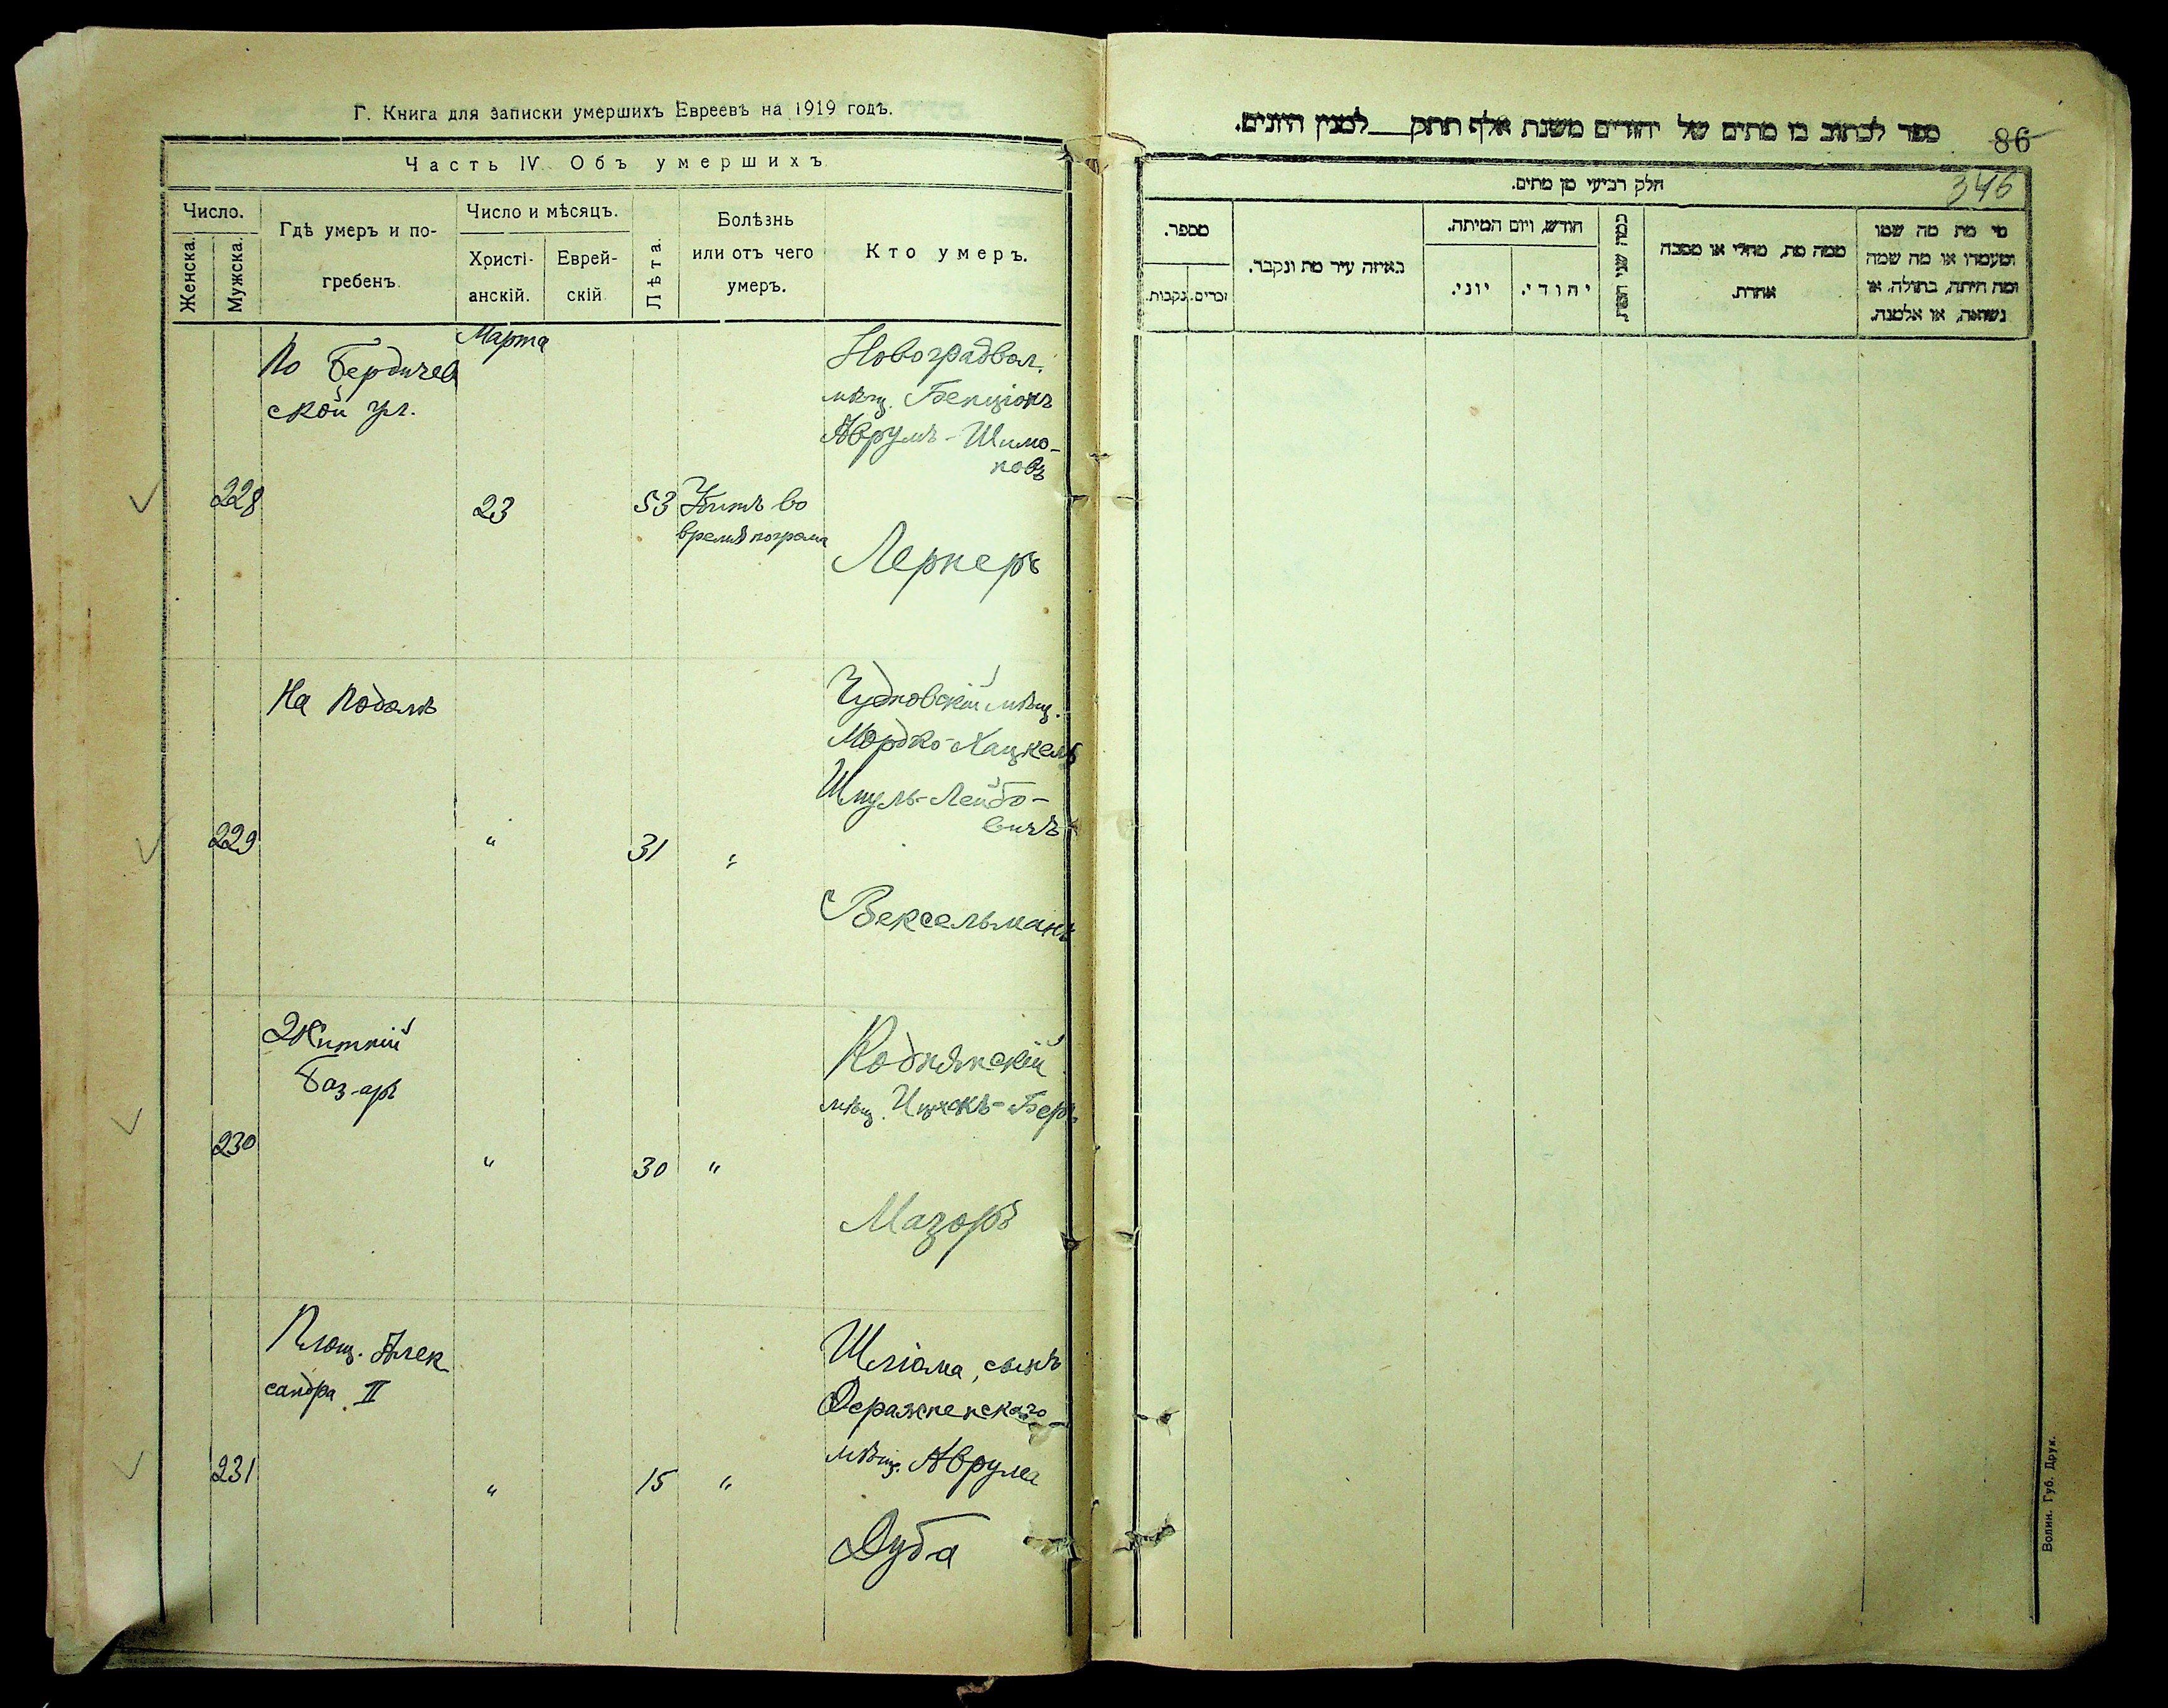 Г. Книга для записки умершихъ Евреевъ на 1919 годъ.
Часть IV Объ умершихъ
Число.
Женска.
Мужска.
Гдѣ умеръ и по-
гребенъ
Число и мѣсяцъ.
Христі-
анскій.
Еврей-
скій
Лѣта.
Болѣзнь
или отъ чего
умеръ.
Кто умеръ.
Марта
По Бердичев
ской ул.
228
23
53
Убитъ во
время погрома
Новоградвол.
мѣщ. Бенціонъ
Аврумъ-Шимо-
новъ
Лернеръ
На Подолѣ
229
"
31
"
Чудновскій мѣщ.
Мордко-Хацкель
Шмуль-Лейбо-
вичъ
Вексельманъ
Житній
Баз-аръ
230
"
30
"
Коднянскій
мѣщ. Ицхокъ-Беръ
Мазоръ
Площ. Алек
сандра II
231
"
15
"
Шліома, сынъ
Деражненскаго
мѣщ. Аврума
Дуба
ספר לכתוב בו מתים של יהודים משנת אלף תתק למנין היונים.
86
346
חלק רביעי מן מתים.
מספר.
זכרים.
נקבות.
באיזה עיר מת ונקבר.
חודש, ויום המיתה.
יוני.
יהודי.
כמה שני המת.
ממה מת, מחלי או מסבה
אחרת.
מי מת מה שמו
ומעמדו או מה שמה
ומה היתה, בתולה, או
נשואה, או אלמנה.
Волин. Губ. Друк.